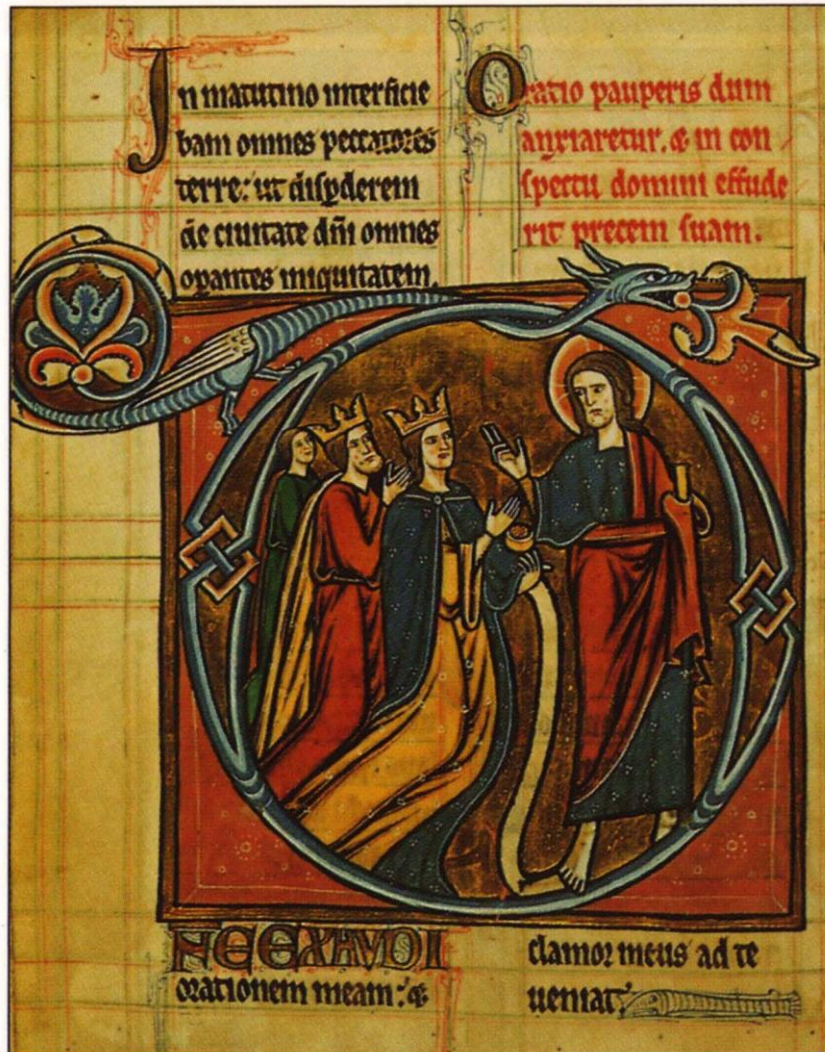 In matutino interficie
bam omnes peccatores
terre: ut disꝑderem
de ciuitate dñi omnes
oꝑantes iniquitatem.
Oratio pauperis dum
anxiaretur. & in con
spectu domini effude
rit precem suam.
D
NE EXAVDI
orationem meam: &
clamor meus ad te
ueniat.